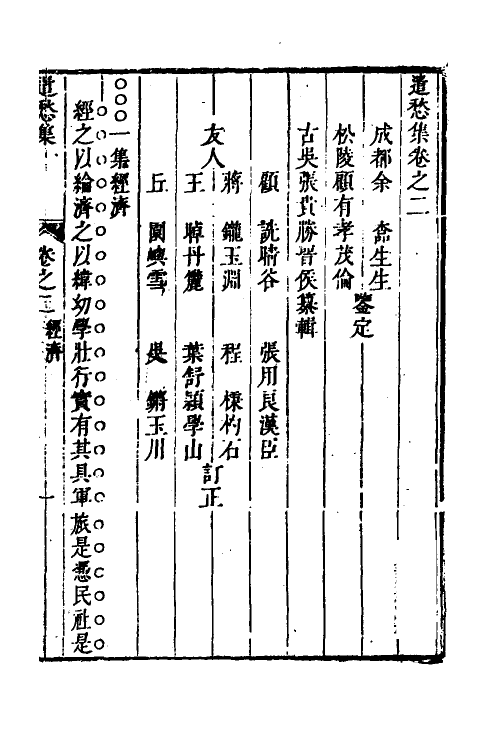 遣愁集卷之二
成都余　㟢生生
松陵顧有孝茂倫
鑒定
古吳張貴勝晋侯纂輯
顧　詵畤谷　張用良漢臣
蔣　鑨玉淵　程　棅杓石
友人
王　晫丹麓　葉舒穎學山
訂正
丘　園嶼雪　吳　鏘玉川
一集經濟
經之以綸濟之以緯幼學壯行實有其具軍旅是憑民社是
遣愁集
卷之二
經濟
一